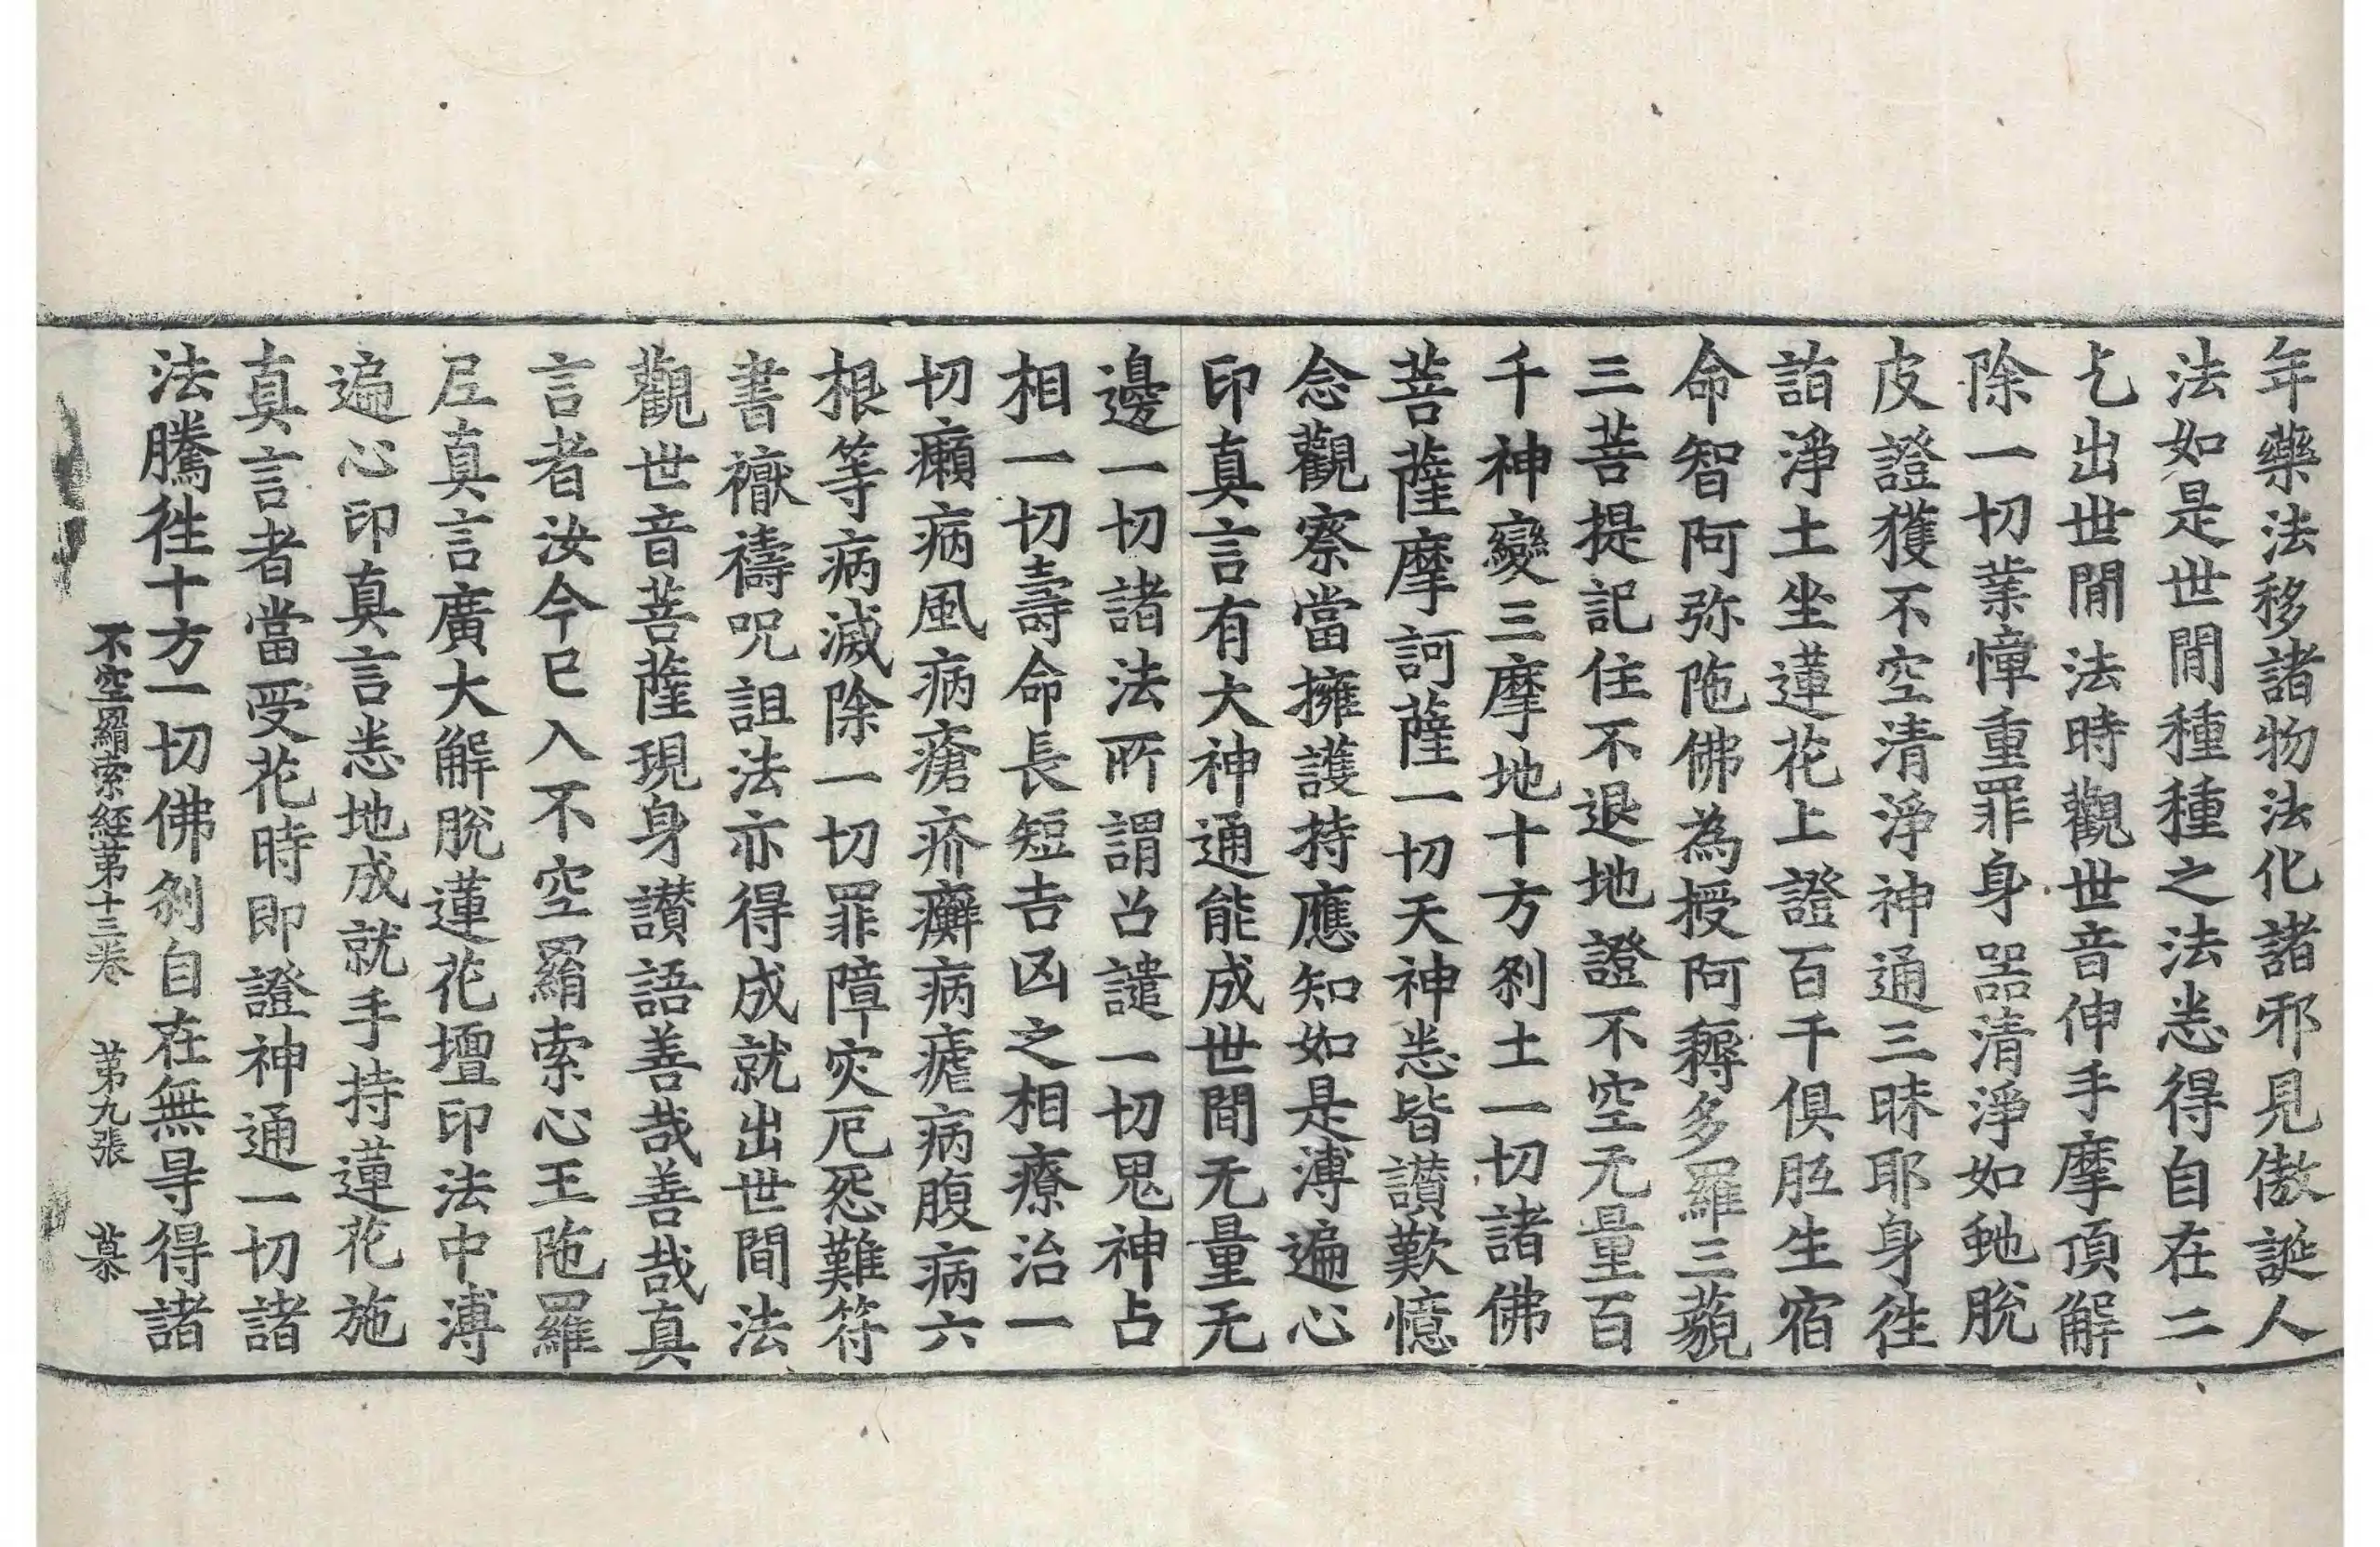 年藥法移諸物法化諸邪見傲誕人
法如是世間種種之法悉得自在二
乞出世間法時觀世音伸手摩頂解
除一切業憧重罪身器清淨如虵脫
皮證獲不空清淨神通三昧耶身徃
詣淨土坐蓮花上證百千俱胝生宿
命智阿弥陁佛為授阿耨多羅三藐
三菩提記住不退地證不空无量百
千神變三摩地十方刹土一切諸佛
菩薩摩訶薩一切天神悉皆讃歎憶
念觀察當擁護持應知如是溥遍心
印真言有大神通能成世間无量无
邊一切諸法所謂召譴一切鬼神占
相一切壽命長短吉凶之相療治一
切癩病風病瘡疥癬病瘧病腹病六
根等病滅除一切罪障灾厄怨難符
書禳禱呪詛法亦得成就出世間法
觀世音菩薩現身讃語善哉善哉真
言者汝今已入不空羂索心王陁羅
尼真言廣大解脫蓮花壇印法中溥
遍心印真言悉地成就手持蓮花施
真言者當受花時即證神通一切諸
法騰徃十方一切佛刹自在無㝵得諸
不空羂索経苐十三卷　苐九張　慕